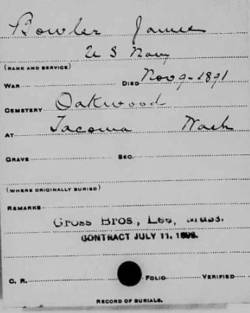 Bowler James
U S Navy
(RANK AND SERVICE)
WAR DIED Nov 9-1891
CEMETERY Oakwood
AT Tacoma Wash
GRAVE SEC.
(WHERE ORIGINALLY BURIED)
REMARKS
Gross Bros., Lee, Mass.
CONTRACT JULY 11, 1898.
C. R. FOLIO VERIFIED
RECORD OF BURIALS.